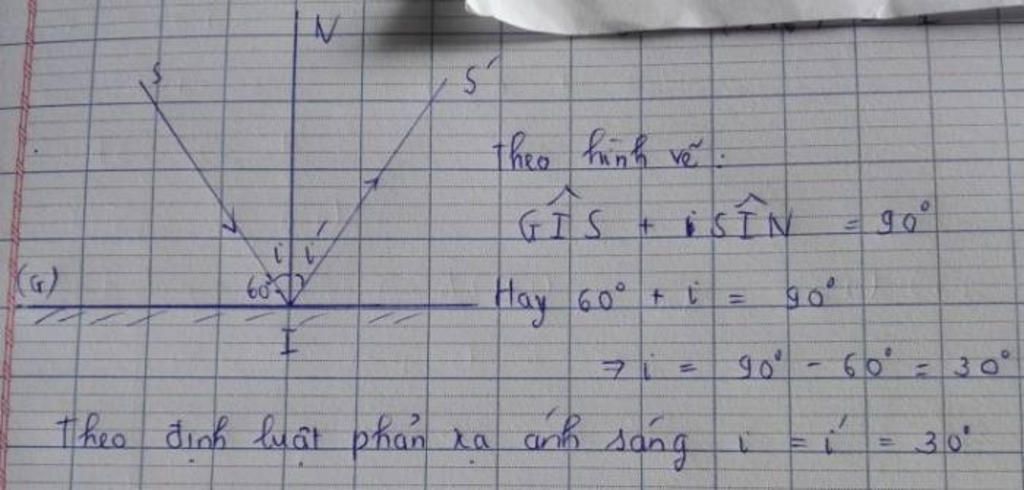 N
S
S'
Theo hình vẽ:
GÎS + SÎN = 90°
i i'
(G)
60°
Hay 60° + i = 90°
I
⇒ i = 90° - 60° = 30°
Theo định luật phản xạ ánh sáng i = i' = 30°